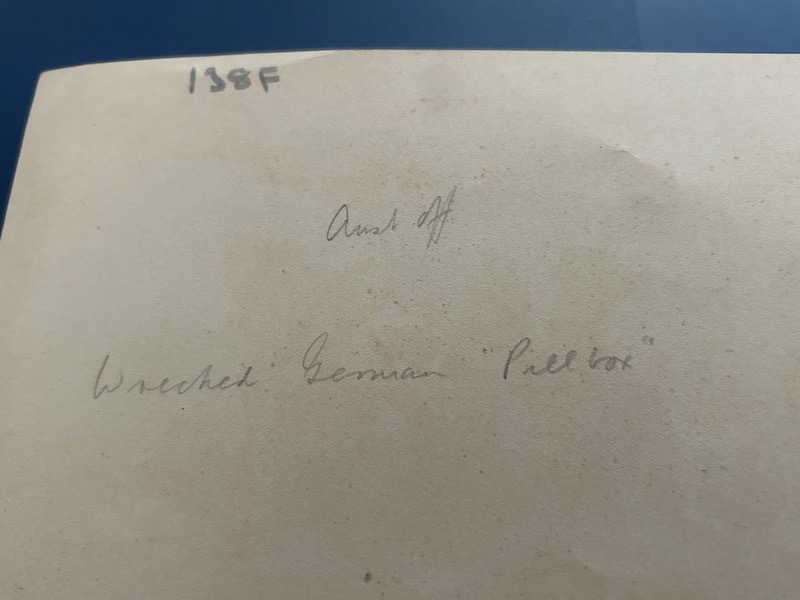 138F
Aust Off
Wrecked German "Pillbox"